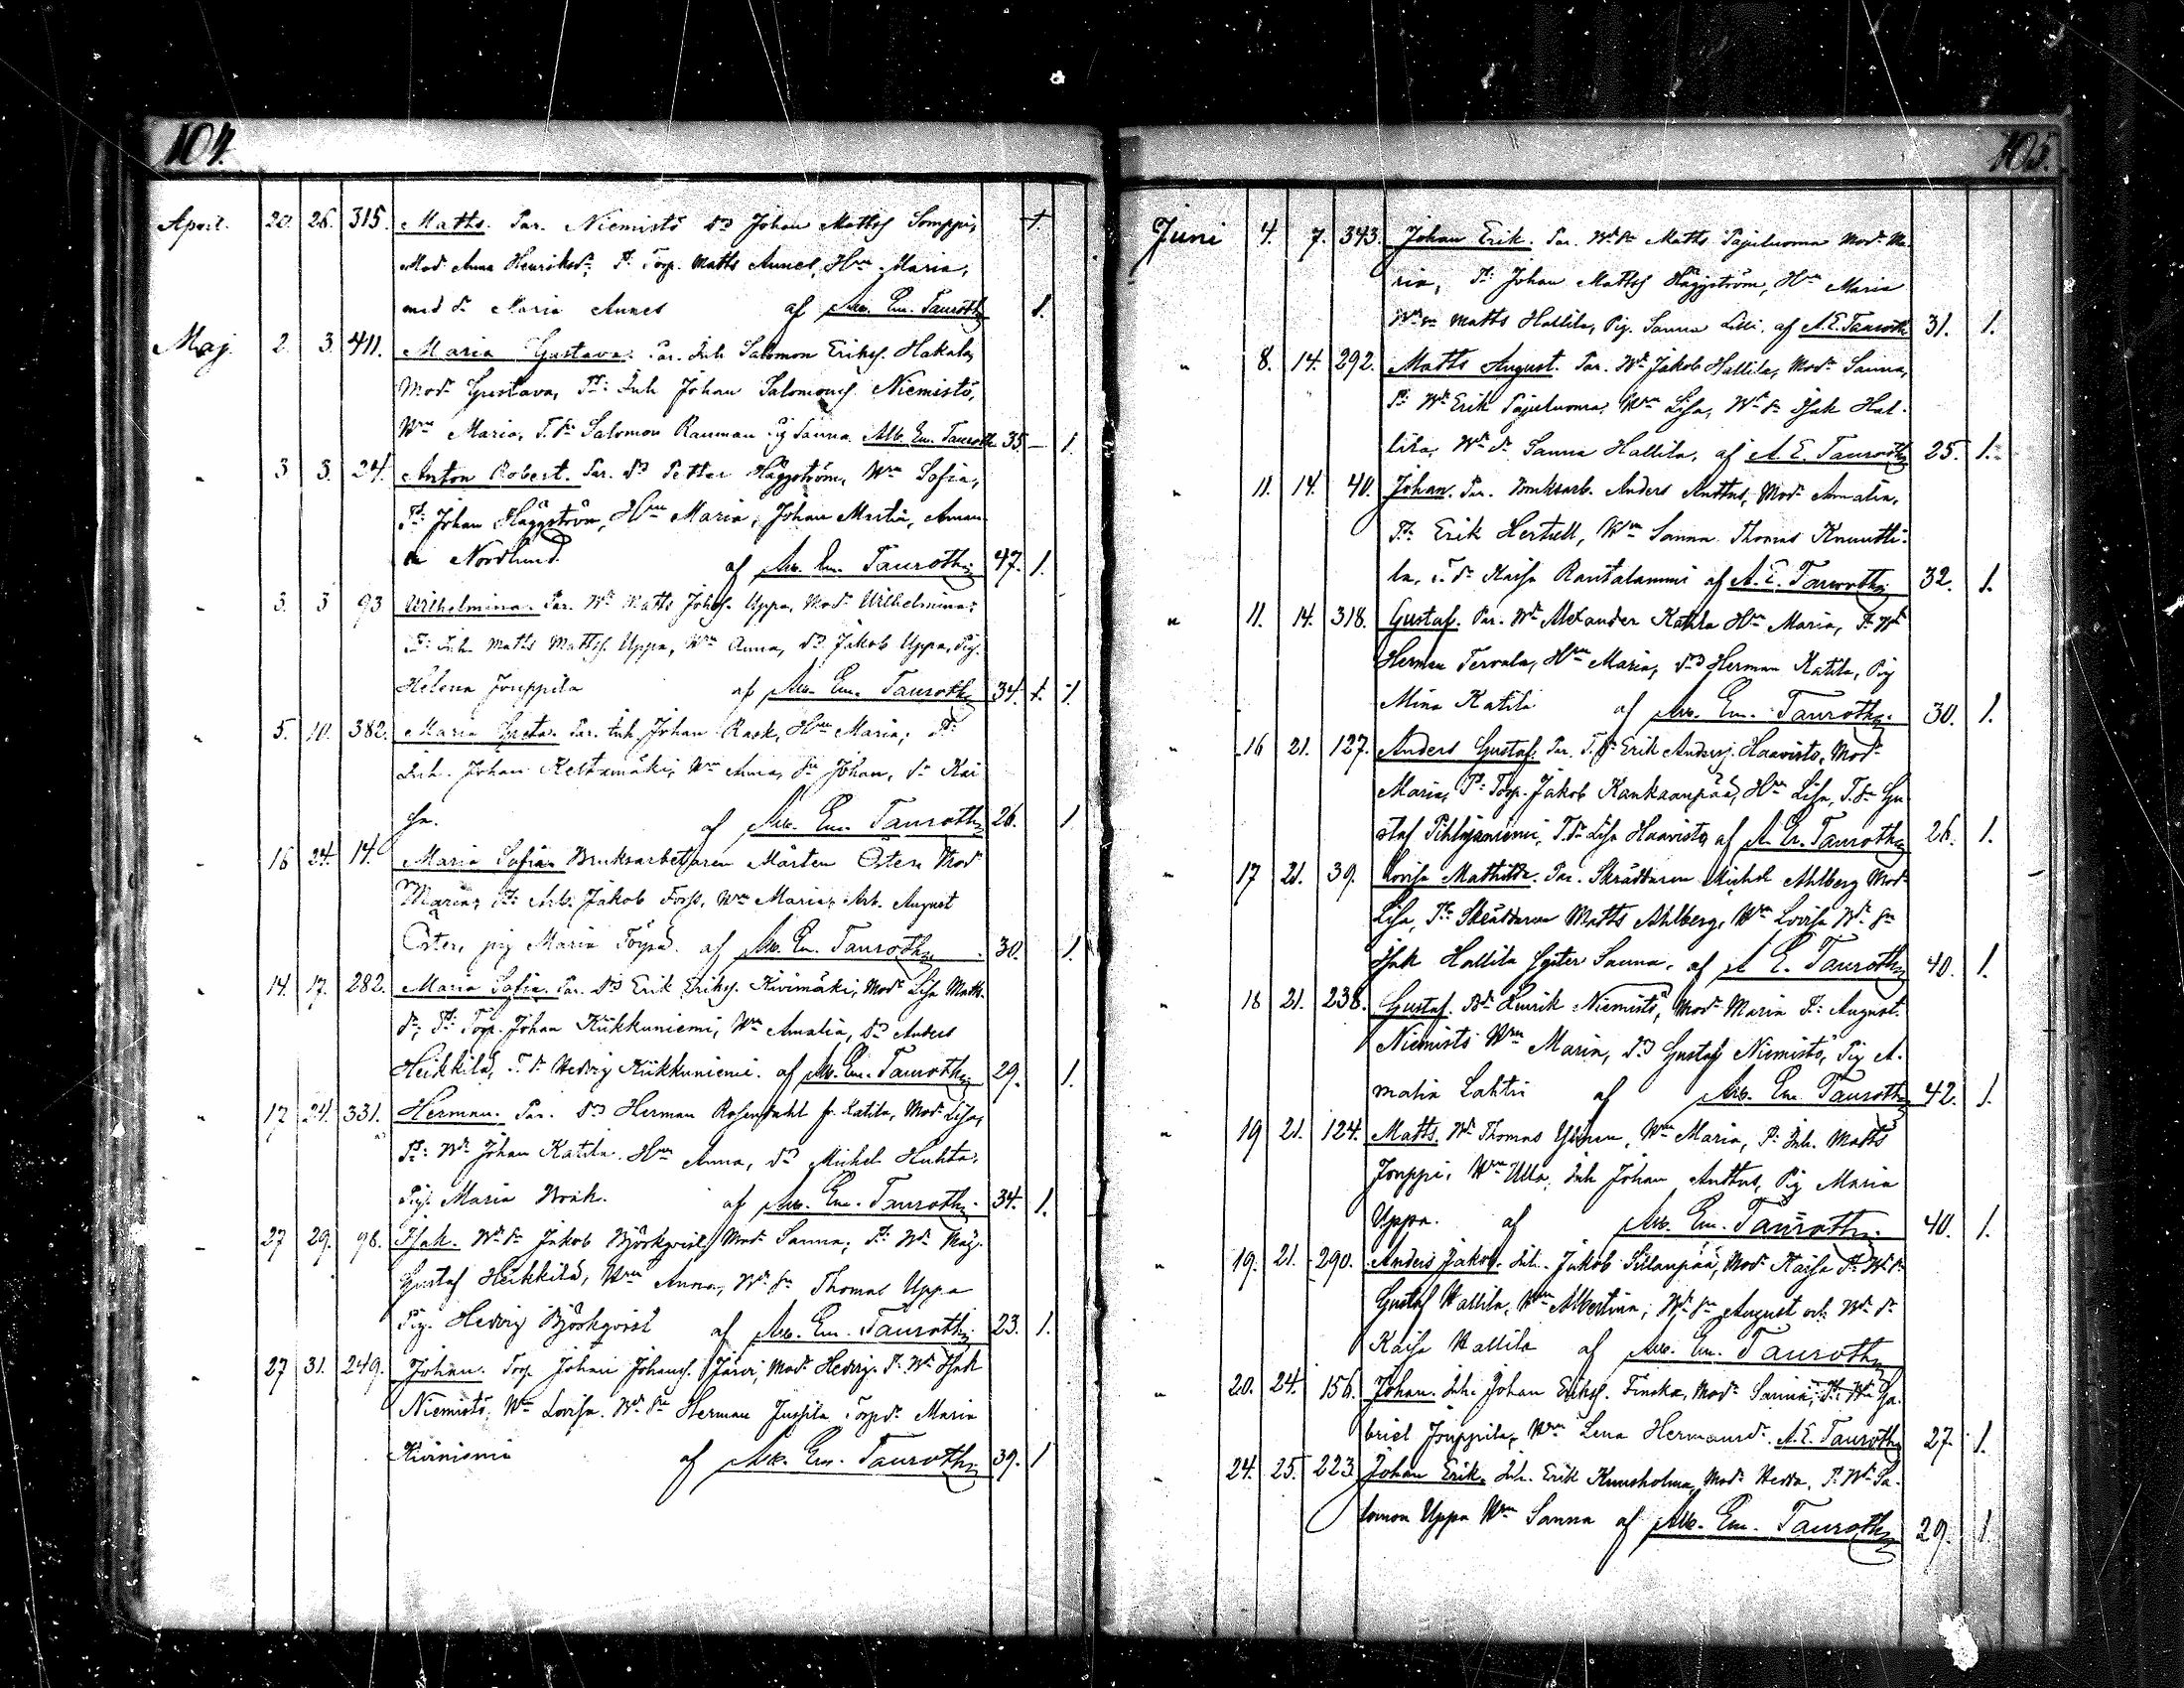 104.
April. 20. 26. 315. Matts. Par. Niemistö Sn Johan Matts. Somppi,
Mod. Anna Henriksdr, Tt: Torp. Matts Annes, Hru Maria,
med dr Maria Annes af Arv. Em. Tauroth 1.
Maj. 2. 3. 411. Maria Gustava. Par. Inh Salomon Eriks. Hakala,
Modr Gustava, Tt: Inh Johan Salomons. Niemistö,
Wru Maria, T. Sn Salomon Rauman Pig Sanna Alb. Em. Tauroth 35. – 1.
" 3 3. 24. Anton Robert. Par. Sn Petter Häggström, Wru Sofia,
Tt: Johan Häggström, Hru Maria, Johan Martin, Aman-
da Nordlund. af Arv. Em. Tauroth 47. 1.
" 3. 3 93 Wilhelmina. Par. Matts Johs. Uppa, Modr Wilhelmina;
Tt: Inh. Matts Matts. Uppa, Wru Anna, Sn Jakob Uppa, Pig.
Helena Jouppila af Arv. Em. Tauroth 34. † 1
" 5. 10. 382. Maria Greta. Par. Inh. Johan Rask, Hru Maria; Tt:
Inh. Johan Keltamäki, Wru Anna, Sn Johan, dr Kai-
sa. af Arv. Em. Tauroth 26. 1
" 16 24. 14. Maria Sofia. Bruksarbetaren Mårten Öster, Modr
Maria; Tt: Arb. Jakob Forss, Wru Maria, Arb. August
Öster, pig Maria af Arv. Em. Tauroth 30. 1.
" 14. 17. 282. Maria Sofia. Par. Sn Erik Eriks. Kivimäki, Modr Lisa Matts-
dr; Tt: Torp. Johan Kukkuniemi, Wru Amalia, Sn Anders
Heikkilä, T. dr Hedvig Kukkuniemi. af Arv. Em. Tauroth 29. 1.
" 17 24. 331. Herman. Par. Sn Herman Rosendahl fr. Katila, Modr Lisa,
Tt: Johan Katila. Hru Anna, Sn Michel Huhta,
Pig. Maria af Arv. Em. Tauroth 34. 1.
" 27 29. 98. Isak. Jakob Björkqvist, Modr Sanna; Tt: Maj.
Gustaf Heikkilä, Wru Anna, Thomas Uppa
Pig. Hedvig Björkqvist af Arv. Em. Tauroth 23. 1.
" 27 31. 249. Johan. Torp. Johan Johans. Järvi, Modr Hedvig. Tt. Isak
Niemistö, Wru Lovisa. Herman Jussila, Torpdr Maria
Kiviniemi af Arv. Em. Tauroth 39. 1
105.
Juni 4. 7. 343. Johan Erik. Par. Matts Pajuluoma Modr Ma-
ria, Tt: Johan Matts. Häggström, Hru Maria
Matts Hallila, Pig. Sanna Lilli. af A. E. Tauroth 31. 1.
" 8. 14. 292. Matts August. Par. Jakob Hallila, Modr Sanna,
Tt: Erik Pajuluoma, Wru Lisa, Isak Hal-
lila, Sanna Hallila, af A. E. Tauroth 25. 1.
" 11. 14. 40. Johan. Par. Bruksarb. Anders Anttus, Modr Amalia,
Tt: Erik Hertell, Wru Sanna Thomas Knuutti-
la, T. dr Kaisa Rantalammi af A. E. Tauroth 32. 1.
" 11. 14. 318. Gustaf. Par. Alexander Katila Hru Maria, Tt
Herman Tervala, Hru Maria, Sn Herman Katila, Pig
Mina Katila af Arv. Em. Tauroth 30. 1.
" 16 21. 127. Anders Gustaf. Par. T. Sn Erik Anders. Haavisto, Modr
Maria, Tt: Torp. Jakob Kankaanpää, Hru Lisa, T. Sn Gu-
staf Pihlajaniemi, T. dr Lisa Haavisto, af A. Em. Tauroth 26. 1.
" 17 21. 39. Lovisa Mathilda. Par. Skräddaren Michel Ahlberg Modr
Lisa, Tt: Skräddaren Matts Ahlberg, Wru Lovisa
Isak Hallila Syster Sanna. af A. E. Tauroth 40. 1.
" 18 21. 238. Gustaf. Henrik Niemistö, Modr Maria Tt: August
Niemistö Wru Maria, Sn Gustaf Niemistö, Pig A-
malia Lahti af Arv. Em. Tauroth 42. 1.
" 19 21. 124. Matts. Thomas Ylinen, Wru Maria, Tt: Inh. Matts
Jouppi, Wru Ulla, Inh Johan Anttus, Pig Maria
Uppa. af Arv. Em. Tauroth 40. 1.
" 19. 21. 290. Anders Jakob. Inh. Jakob Sillanpää, Modr Kaisa Tt.
Gustaf Hallila, Wru Albertina, August och
Kaisa Hallila af Arv. Em. Tauroth
" 20. 24. 156. Johan. Inh. Johan Eriks. Finska, Modr Sanna, Tt. Ga-
briel Jouppila, Wru Lena Hermansdr. A. E. Tauroth 27. 1.
" 24. 25. 223. Johan Erik. Inh. Erik Kuusholma, Modr Hedda. Tt. Sa-
lomon Uppa Wru Sanna af Arv. Em. Tauroth 29. 1.